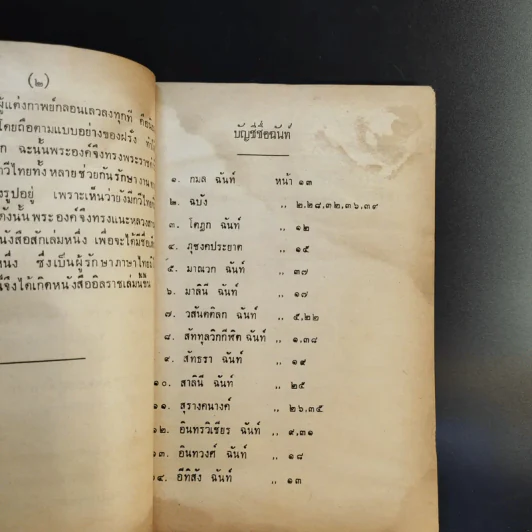 (๒)
ผู้แต่งกาพย์กลอนเลวลงทุกที
โดยถือตามแบบอย่างของฝรั่ง
ฉะนั้นพระองค์จึงทรงพระราช
กวีไทยทั้งหลายช่วยกันรักษางาน
รูปอยู่ เพราะเห็นว่ายังมีกวีไทย
ดังนั้นพระองค์จึงทรงแนะหลวง
หนังสือสักเล่มหนึ่ง เพื่อจะได้มีชื่อ
หนึ่ง ซึ่งเป็นผู้รักษาภาษาไทย
จึงได้เกิดหนังสืออิลราชเล่มนี้ขึ้น
บัญชีชื่อฉันท์
๑. กมล ฉันท์ หน้า ๑๓
๒. ฉบัง ,, ๒,๒๘,๓๒,๓๖,๓๙
๓. โตฎก ฉันท์ ,, ๑๒
๔. ภุชงคประยาต ,, ๑๕
๕. มาณวก ฉันท์ ,, ๓๗
๖. มาลินี ฉันท์ ,, ๑๗
๗. วสันตดิลก ฉันท์ ,, ๕,๒๒
๘. สัททุลวิกกีฬิต ฉันท์ ,, ๑,๓๘
๙. สัทธรา ฉันท์ ,, ๑๙
๑๐. สาลินี ฉันท์ ,, ๒๕
๑๑. สุรางคนางค์ ,, ๒๖,๓๕
๑๒. อินทรวิเชียร ฉันท์ ,, ๙,๓๑
๑๓. อินทวงศ์ ฉันท์ ,, ๑๘
๑๔. อีทิสัง ฉันท์ ,, ๑๓